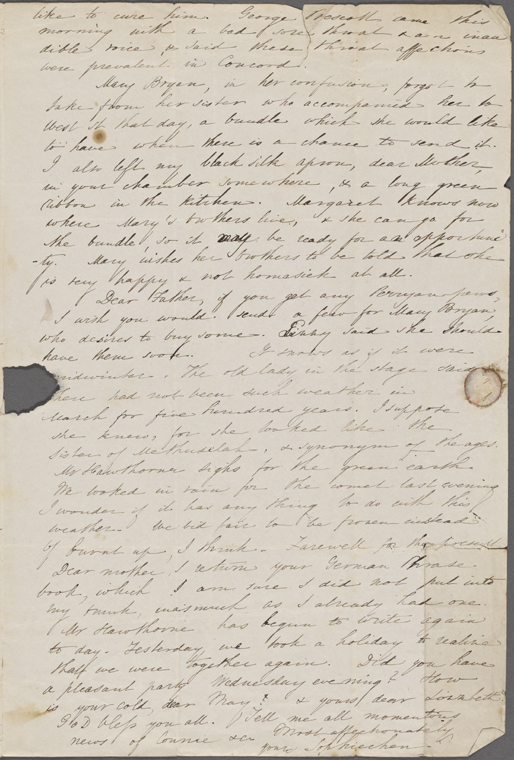 like to cure him. George Prescott came this
morning with a bad sore throat & an inau
dible voice & said these throat affections
were prevalent in Concord.
Mary Bryan, in her confusion, forgot to
take from her sister who accompanied her to
West St that day, a bundle which she would like
to have when there is a chance to send it.
I also left my black silk apron, dear Mother,
in your chamber somewhere, & a long green
ribbon in the kitchen. Margaret knows now
where Mary's brothers live, & she can go for
the bundle, so it may be ready for an opportuni
-ty. Mary wishes her brothers to be told that she
is very happy & not homesick at all.
Dear Father, if you get any
I wish you would send a few for Mary Bryan
who desires to buy some. said she should
have them soon. It snows as if it were
midwinter. The old lady in the stage said
there had not been such weather in
March for five hundred years. I suppose
she knew, for she looked like the
sister of Methuselah, & synonym of the ages.
Mr Hawthorne sighs for the green earth.
We looked in vain for the comet last evening
I wonder if it has any thing to do with this
weather. We bid fair to be frozen instead
of burnt up, I think. Farewell for the present
Dear mother I return your German Phrase
book, which I am sure I did not put into
my trunk, inasmuch as I already had one.
Mr Hawthorne has begun to write again
to day. Yesterday we took a holiday to realize
that we were together again. Did you have
a pleasant party Wednesday evening? How
is your cold, dear Mary? & yours, dear
God bless you all. Tell me all momentous
news of Connie &c Most affectionately
your Sophiechen